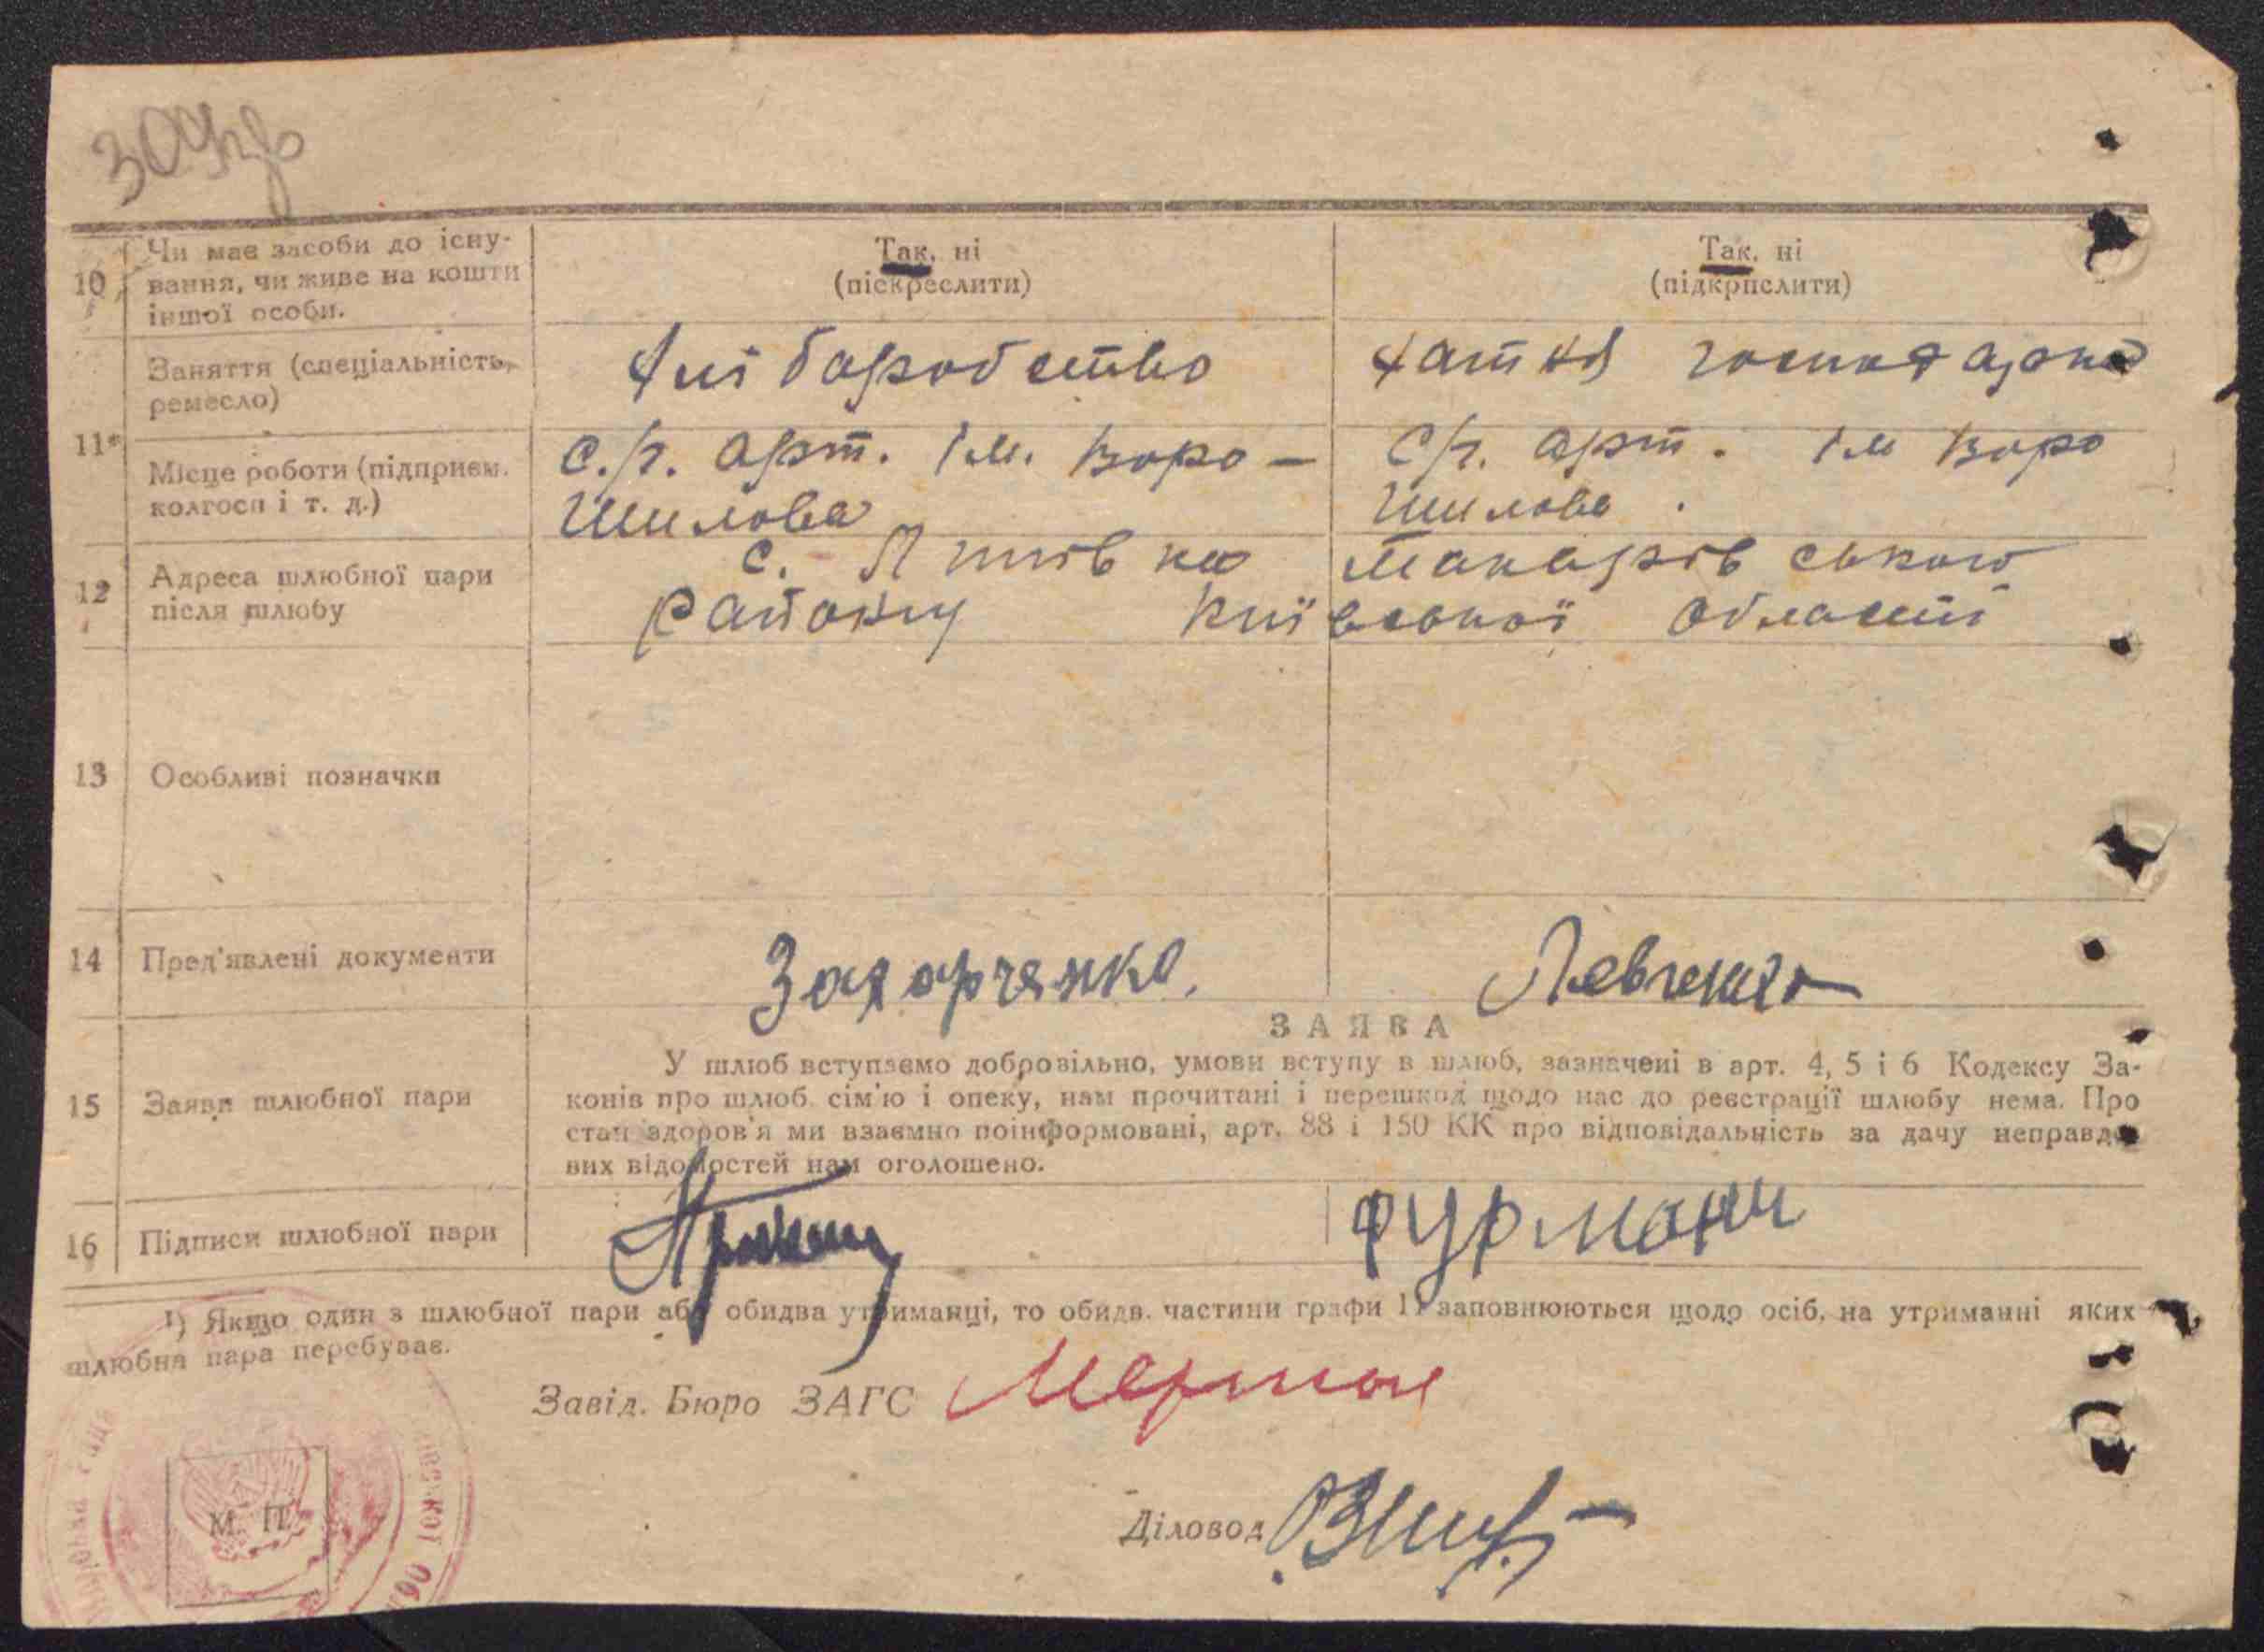 10 Чи має засоби до існу-
вання, чи живе на кошти
іншої особи.
Так, ні
(піскреслити)
Так, ні
(підкрпслити)
11* Заняття (спеціальність,
ремесло)
хліборобство
хатня господарка
Місце роботи (підприєм.
колгосп і т. д.)
с.г. арт. ім. Воро-
шилова
с/г. арт. ім Воро
шилова.
12 Адреса шлюбної пари
після шлюбу
с. Липівка Макарівського
району Київської області
13 Особливі позначки
14 Пред'явлені документи
Захарченко.
Левченко
15 Заява шлюбної пари
ЗАЯВА
У шлюб вступаємо добровільно, умови вступу в шлюб, зазначені в арт. 4, 5 і 6 Кодексу За-
конів про шлюб. сім'ю і опеку, нам прочитані і перешкод щодо нас до реєстрації шлюбу нема. Про
стан здоров'я ми взаємно поінформовані, арт. 88 і 150 КК про відповідальність за дачу неправди
вих відомостей нам оголошено.
16 Підписи шлюбної пари
Фурман
¹) Якщо один з шлюбної пари або обидва утриманці, то обидв. частини графи 11 заповнюються щодо осіб, на утриманні яких
шлюбна пара перебуває.
Завід. Бюро ЗАГС
Діловод
М. П.